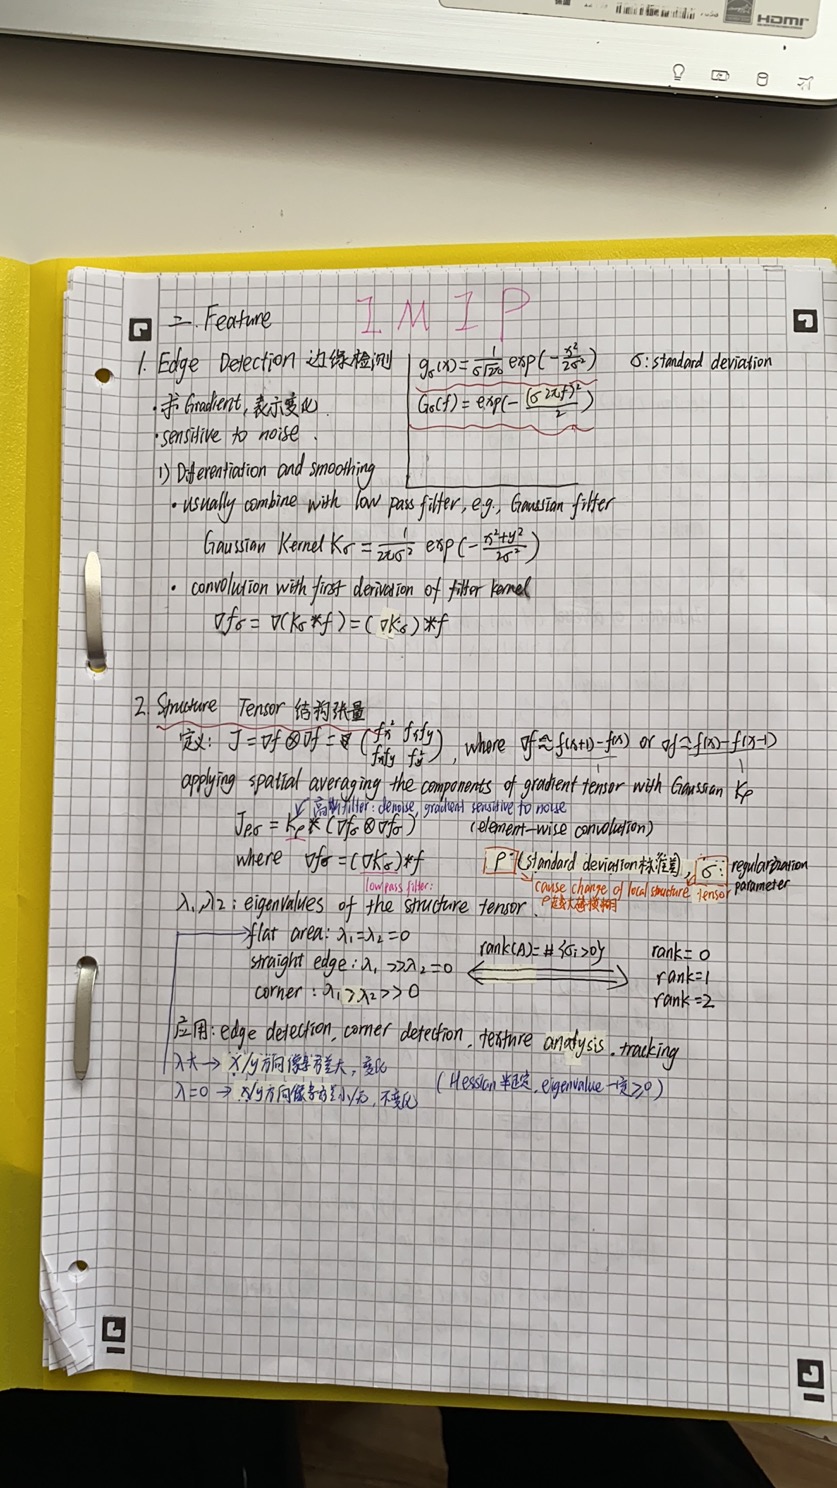 HDMI
IMIP
二. Feature
1. Edge Detection 边缘检测
gσ(x) = 1/(σ√2π) exp(-x²/2σ²)
σ: standard deviation
Gσ(f) = exp(-(σ2πf)²/2)
· 求 Gradient, 表示变化.
· sensitive to noise.
1) Differentiation and smoothing
· usually combine with low pass filter, e.g., Gaussian filter
Gaussian Kernel Kσ = 1/(2πσ²) exp(-(x²+y²)/2σ²)
· convolution with first derivation of filter kernel
∇fσ = ∇(Kσ*f) = (∇Kσ)*f
2. Structure Tensor 结构张量
定义: J = ∇f⊗∇f = (fx² fxfy
fxfy fy²), where ∇f≈f(x+1)-f(x) or ∇f≈f(x)-f(x-1)
applying spatial averaging the components of gradient tensor with Gaussian Kρ
高斯filter: denoise, gradient sensitive to noise
Jρσ = Kρ*(∇fσ⊗∇fσ) (element-wise convolution)
where ∇fσ = (∇Kσ)*f
low pass filter:
ρ: (standard deviation 标准差), σ: regularization parameter
cause change of local structure tensor
ρ越大越模糊
λ1, λ2: eigenvalues of the structure tensor.
flat area: λ1=λ2=0
straight edge: λ1>>λ2=0
corner: λ1>λ2>>0
rank(A)=#{σi>0}
rank=0
rank=1
rank=2
应用: edge detection, corner detection, texture analysis, tracking
λ大→ x/y方向像素差大, 变化
λ=0 → x/y方向像素差小/无, 不变化
(Hessian半正定, eigenvalue一定≥0)